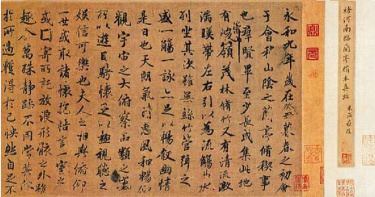 褚河南臨蘭亭絹本真跡
永和九年歲在癸丑暮春之初會
于會稽山陰之蘭亭脩稧事
也羣賢畢至少長咸集此地
有峻領茂林脩竹又有清流激
湍暎帶左右引以為流觴曲水
列坐其次雖無絲竹管弦之
盛一觴一詠亦足以暢叙幽情
是日也天朗氣清惠風和暢仰
觀宇宙之大俯察品類之盛
所以遊目騁懷足以極視聽之
娛信可樂也夫人之相與俯仰
一世或取諸懷抱悟言一室之
內或因寄所託放浪形骸之外雖
趣舍萬殊靜躁不同當其欣
於所遇蹔得於己怏然自足不